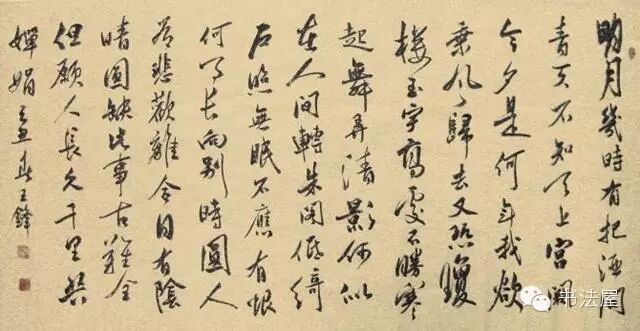 明月幾時有把酒問
青天不知天上宮闕
今夕是何年我欲
乘風歸去又恐瓊
樓玉宇高處不勝寒
起舞弄清影何似
在人間轉朱閣低綺
戶照無眠不應有恨
何事長向別時圓人
有悲歡離合月有陰
晴圓缺此事古難全
但願人長久千里共
嬋娟 王鋒
书法屋